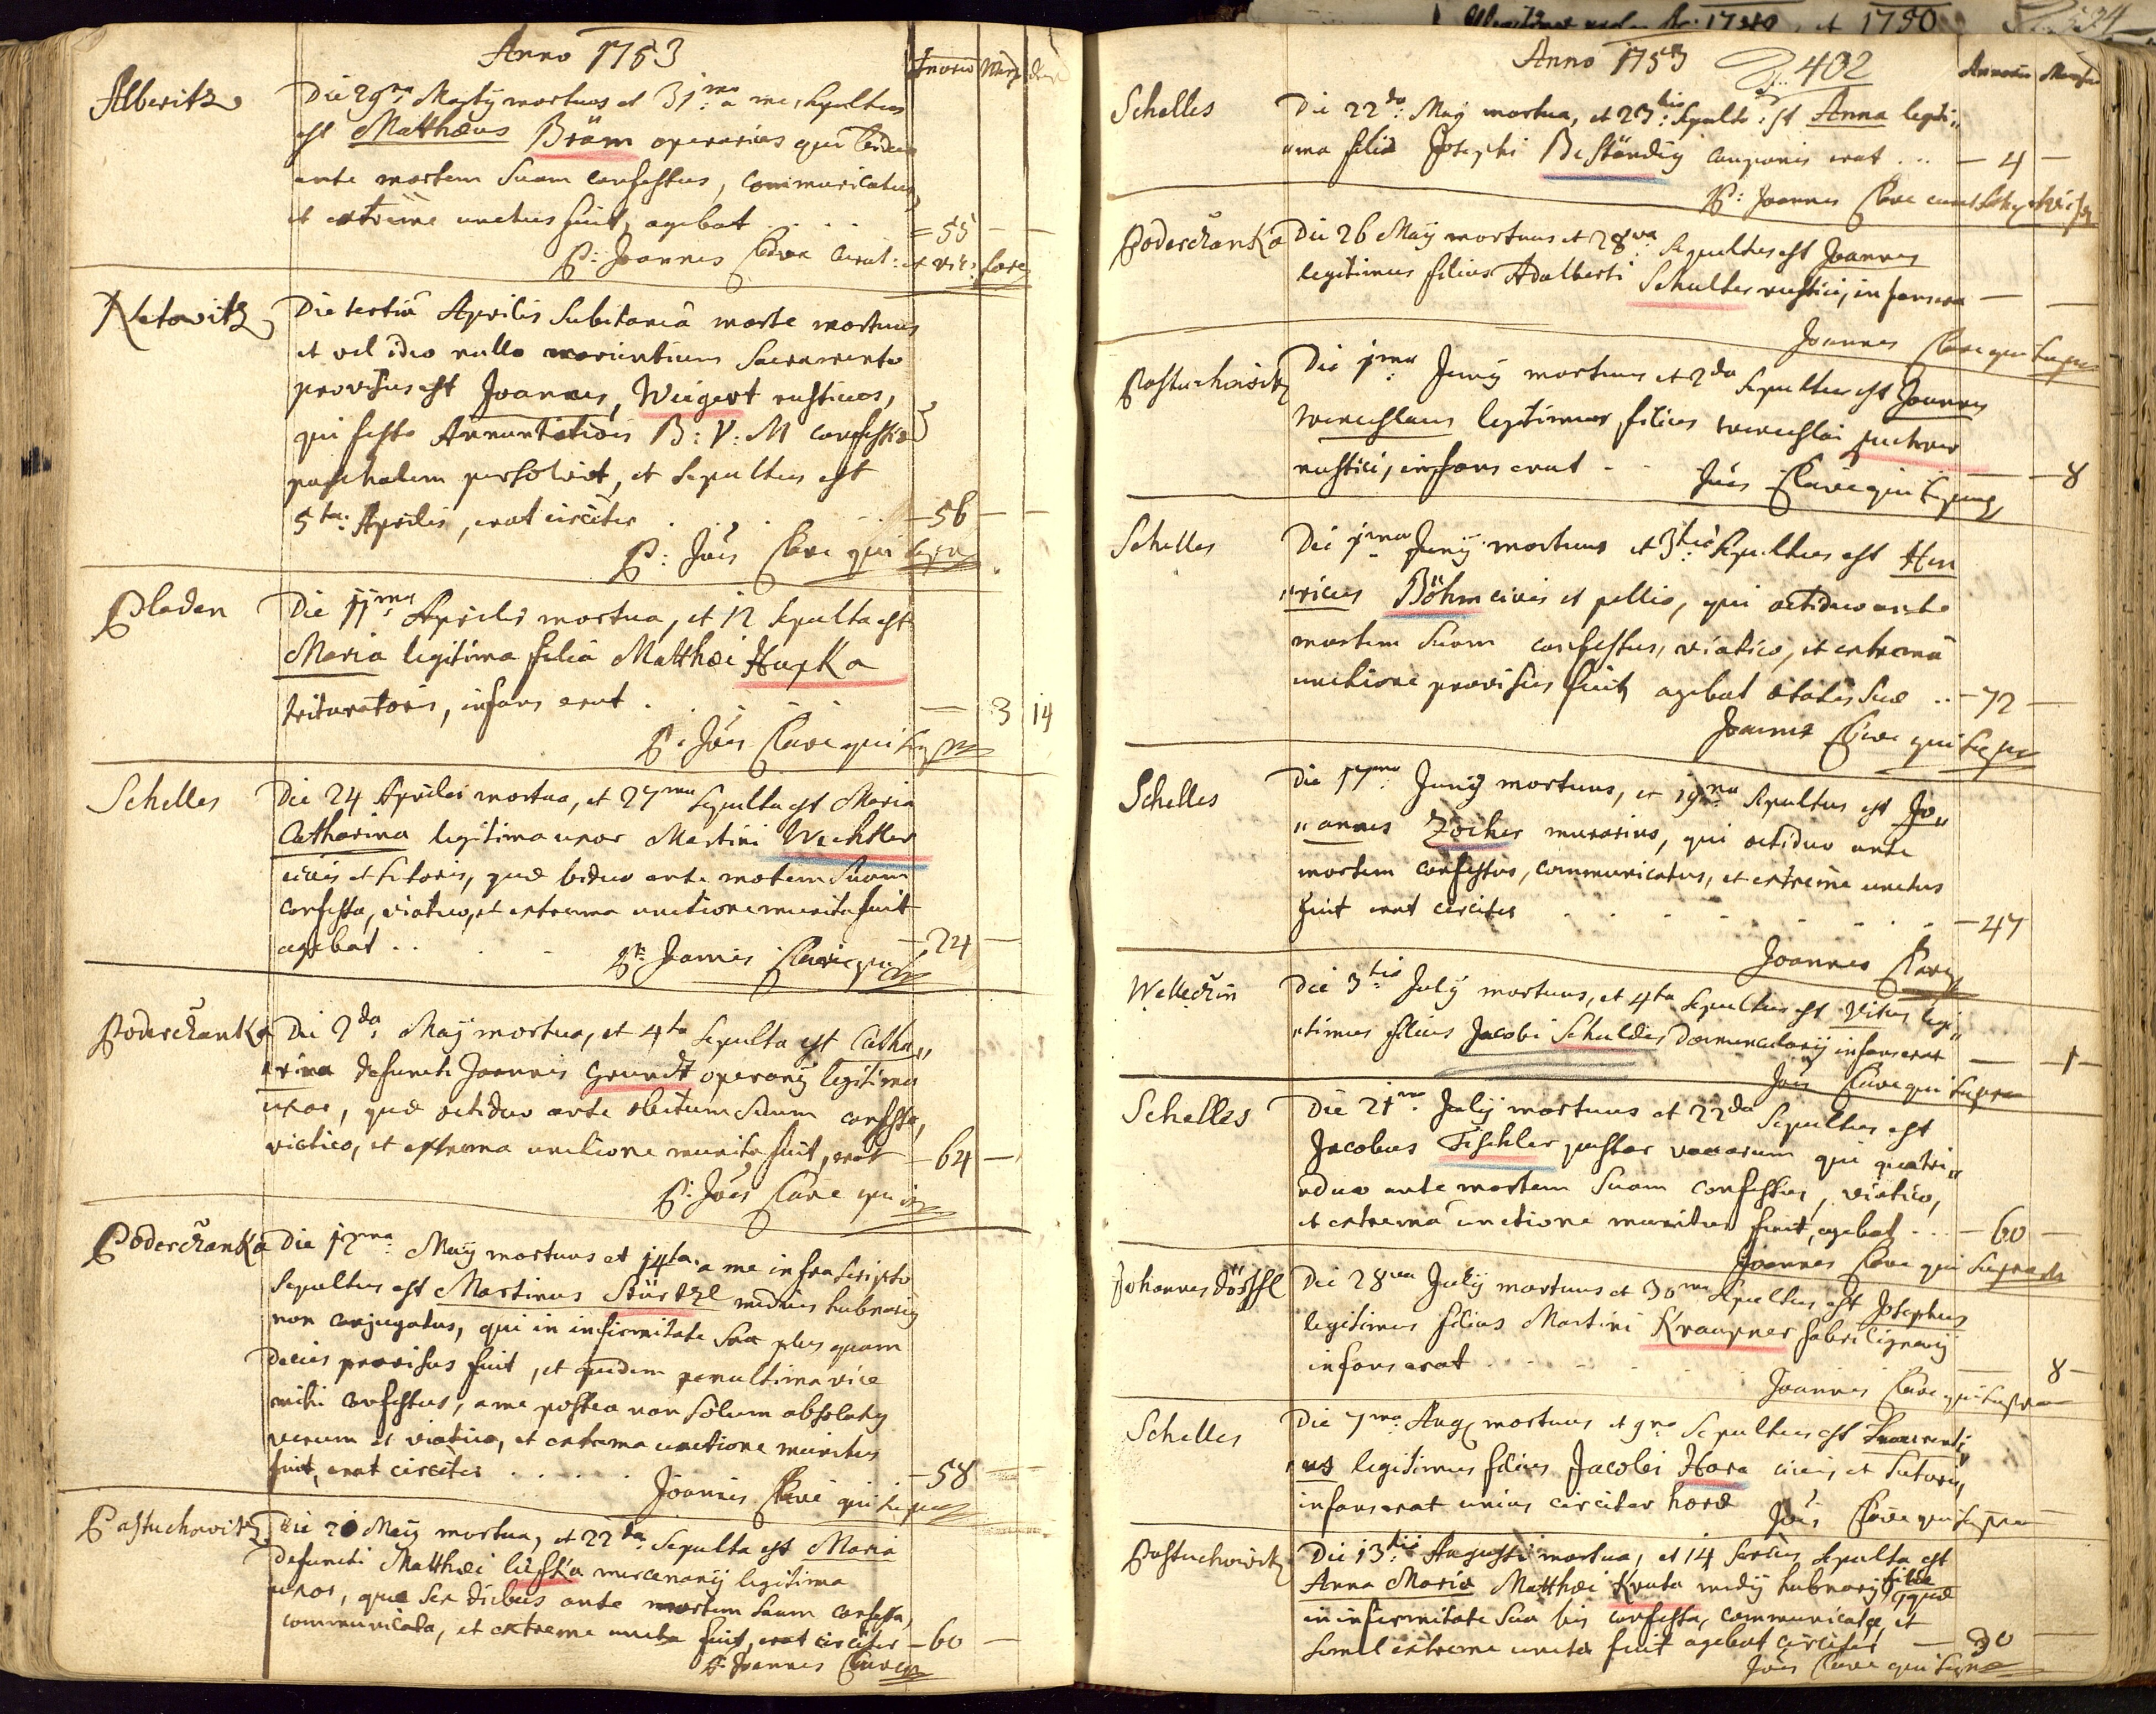 Anno 1753
Alberitz
Die 29na Martij mortuus et 31ma a me sepultus
est Matthæus Bräm operarius qui biduo
ante mortem suam confessus, communicatus,
et extreme unctus fuit, agebat . . . . = 55 —
P: Joannes Clave Curat:
Netowitz
Die tertia Aprilis subitanea morte mortuus
et vel ideo nullo morientium Sacramento
provisus est Joannes Weigert rusticus,
qui festo Annuntiationis B: V: M confessionem
paschalem persolvit, et sepultus est
5ta: Aprilis, erat circiter . . . — 56 — —
P: Joês Clave qui supra
Pladen
Die 11ma Aprilis mortua, et 12 sepulta est
Maria legitima filia Matthæi Hupka
trituratoris, infans erat . . . . — 3 14
P: Joês Clave qui supra
Schelles
Die 24 Aprilis mortua, et 27ma sepulta est Maria
Catharina legitima uxor Martini Wechtler
civis et sutoris, quæ biduo ante mortem suam
confessa, viatico, et extrema unctione munita fuit
agebat . . — 24 —
P: Joannes Clave qui supra
Poderczanka
Die 2da May mortua, et 4ta sepulta est Catha„
„rina defuncti Joannis Grundt operarij legitima
uxor, quæ octiduo ante obitum suum confessa,
viatico, et extrema unctione munita fuit, erat — 64 —
P: Joês Clave qui supra
Poderczanka
Die 12ma May mortuus et 14ta a me infra scripto
sepultus est Martinus Stürtzl medius hubnarij
non conjugatus, qui in infirmitate sua plus quam
decies provisus fuit, et quidem penultima vice
mihi confessus, a me postea non solum absolutus
verum et viatico, et extrema unctione munitus
fuit, erat circiter . . . . . — 58 —
Joannes Clave qui supra
Pastuchowitz
Die 20 May mortua, et 22da sepulta est Maria
defuncti Matthæi Liska mercenarij legitima
uxor, quæ sex diebus ante mortem suam confessa,
communicata, et extreme uncta fuit, erat circiter — 60 —
P: Joannes Clave
Anno 1753 402
Schelles
Die 22do: May mortua, et 23tia: sepulta est Anna legiti„
„ma filia Josephi Beständig cauponis erat . . . — 4 —
P: Joannes Clave
Poderczanka
Die 26 May mortuus et 28va sepultus est Joannes
legitimus filius Adalberti Schulter rustici, infans erat — —
Joannes Clave qui supra
Pastuchowitz
Die 1ma Junij mortuus et 2da sepultus est Joannes
Wenceslaus legitimus filius Wenceslai
rustici, infans erat — — 8
Joês Clave qui supra
Schelles
Die 1ma Junij mortuus et 3tia sepultus est Hen
„ricus Böhm civis et pellio, qui octiduo ante
mortem suam confessus, viatico, et extrema
unctione provisus fuit, agebat ætatis suæ . . — 72 —
Joannes Clave qui supra
Schelles
Die 17ma Junij mortuus, et 19na sepultus est Jo„
„annes Zocher murarius, qui octiduo ante
mortem confessus, communicatus, et extreme unctus
fuit erat circiter . . . . . — 47
Joannes Clave
Welleczin
Die 3tia July mortuus, et 4ta sepultus est Vitus legi„
„timus filius Jacobi Schuldes domuncularij infans erat — 1 —
Joês Clave qui supra
Schelles
Die 21ma July mortuus et 22da sepultus est
Jacobus Tischler pastor vaccarum qui quatri„
„duo ante mortem suam confessus, viatico,
et extrema unctione munitus fuit, agebat . . . — 60 —
Joannes Clave qui supra
Johannesdörffl
Die 28va July mortuus et 30ma sepultus est Josephus
legitimus filius Martini Kraupner fabri lignarij
infans erat . . . . . — 8 —
Joannes Clave qui supra
Schelles
Die 7ma Aug mortuus et 9na sepultus est Laurenti„
„us legitimus filius Jacobi Hora civis et sutoris,
infans erat unius circiter horæ
Joês Clave qui supra
Pastuchowitz
Die 13tia Augusti mortua, et 14 sepulta est
Anna Maria Matthæi Kruta medij hubnarij filia quæ
in infirmitate sua bis confessa, communicata, et
semel extreme uncta fuit agebat circiter — 30 —
Joês Clave qui supra